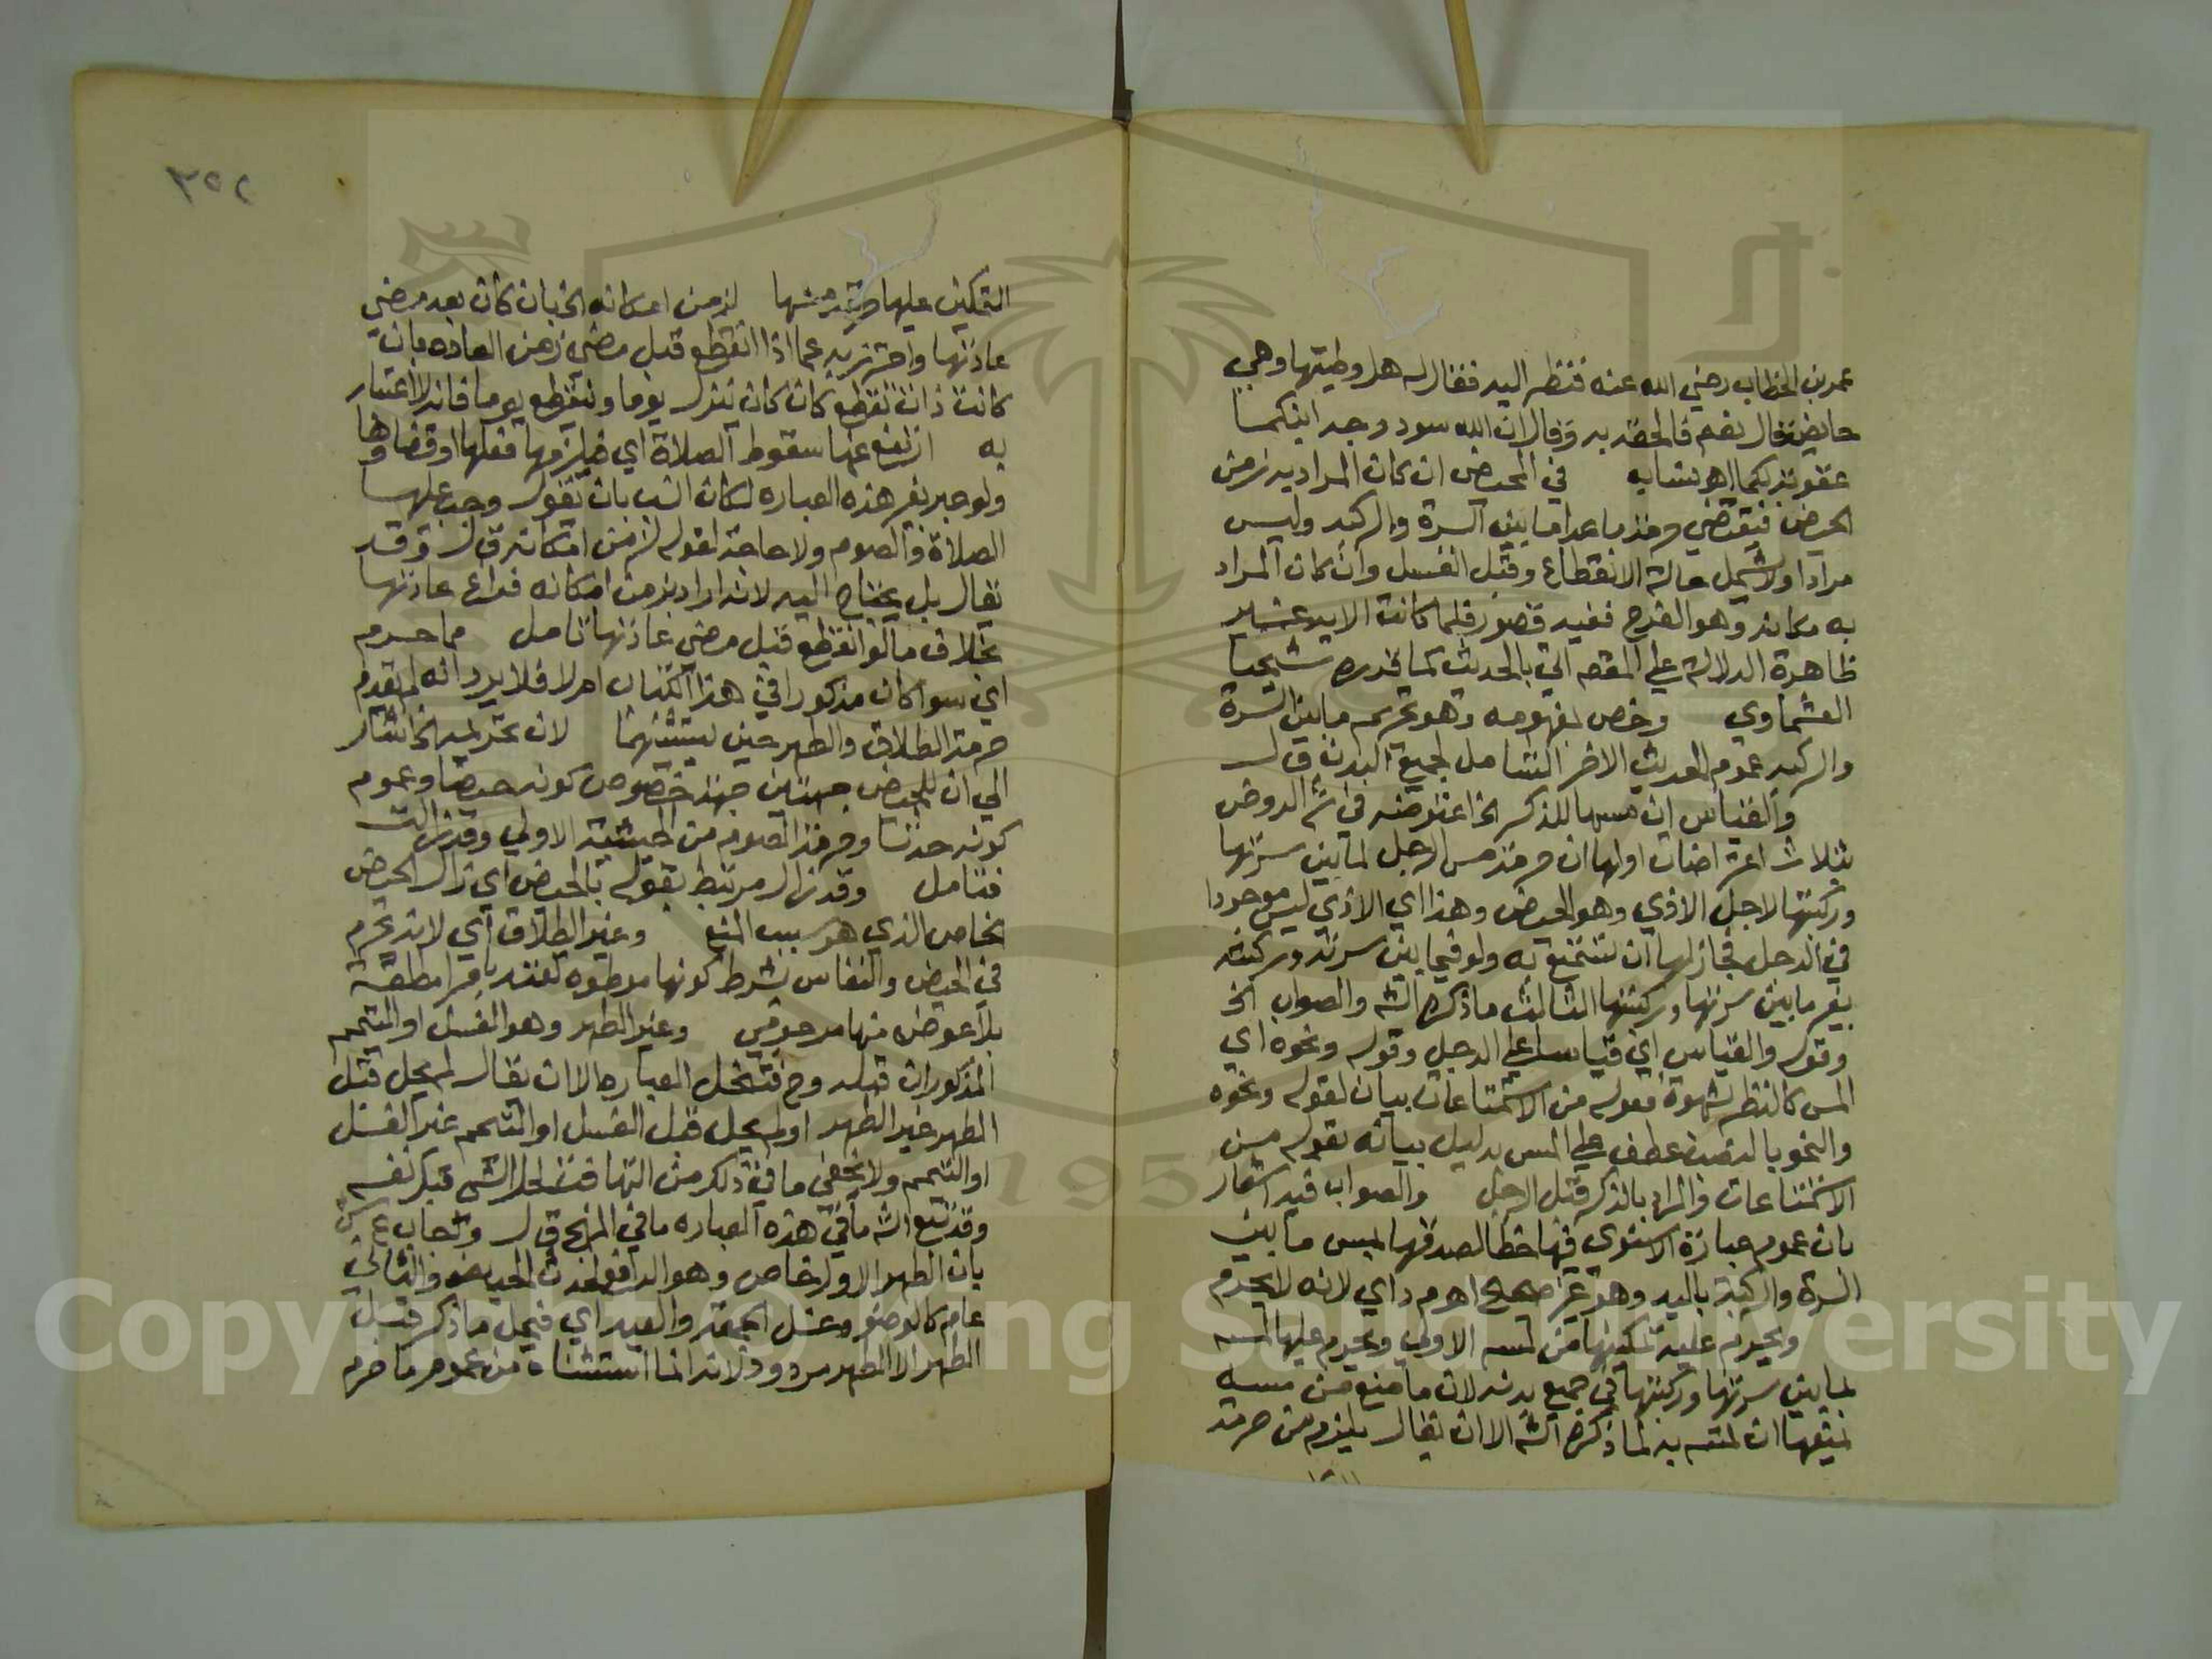 عمر بن الخطاب رضي الله عنه فنظر اليه فقال له هل وطيتها وهي
حايض قال نعم قالحقه به وقال ان الله سود وجه ابنكما
عقوبة لكما اهـ بشابه في المحيض ان كان المراد به زمن
الحيض فيقتضي حرمة ما عدا ما بين السرة والركبه وليس
مرادا ولا يشمل حالة الانقطاع وقبل الغسل وان كان المراد
به مكانه وهو الفرج ففيه قصور فلما كانت الاية غير
ظاهرة الدلالة علي المقصد اتي بالحديث كما قرره شيخنا
العشماوي وخص بمفهومه وهو تحريم ما بين السرة
والركبه عموم الحديث الاخر الشامل لجميع البدن ق ل
والقياس ان مسها للذكر الخ اعترضه في شرح الروض
بثلاث اعتراضات اولها ان حرمة مس الرجل لما بين سرتها
وركبتها لاجل الاذي وهو الحيض وهذا اي الاذي ليس موجودا
في الرجل فجاز لها ان تستمتع به ولو فيما بين سرته وركبته
بغير ما بين سرتها وركبتها الثالث ما ذكره الش والصواب الخ
وقوله والقياس اي قياسا علي الرجل وقوله ونحوه اي
المس كالنظر بشهوة فقوله من الاستمتاعات بيان لقوله ونحوه
والنحو بالنصب عطف علي المس بدليل بيانه بقوله من
الاستمتاعات والمراد بالذكر قبل الرجل والصواب فيه اشعار
بان عموم عبارة الاسنوي فيها خطا لصدقها بمس ما بين
السرة والركبة باليد وهو غير صحيح اهـ م د اي لانه لا يحرم
ويحرم عليه تمكينها من لمسه الاولي ويحرم عليها لمسه
لما بين سرتها وركبتها في جميع بدنه لان ما منع من مسه
نمنعها ان تمسه به لما ذكره الش الا ان يقال يلزم من حرمة
٣٥٢
التمكين عليها حرمة مسها لزمن امكانه الخ بان كان بعد مضي
عادتها واحترز به عما اذا انقطع قبل مضي زمن العاده بان
كانت ذات تقطع كان كان ينزل يوما وينقطع يوما فانه لا اعتبار
به ارتفع عنها سقوط الصلاة اي فيلزمها فعلها او قضاوها
ولو عبر بغير هذه العباره لكان انسب بان يقول وجب عليها
الصلاة والصوم ولا حاجة لقوله لزمن امكانه ق ل وقد
يقال بل يحتاج اليه لانه اراد بزمن امكانه فراغ عادتها
بخلاف ما لو انقطع قبل مضي عادتها تامل مما حرم
اي سوا كان مذكورا في هذا الكتاب ام لا فلا يرد انه لم يتقدم
حرمة الطلاق والطهر حين يستثنيهما لان تحريمه الخ اشار
الي ان للحيض جهتين جهة خصوص كونه حيضا وعموم
كونه حدثا وحرمة الصوم من الحيثية الاولي وقد زالت
فتامل وقد زال مرتبط بقوله بالحيض اي زال الحيض
بخاص الذي هو سبب المنع وغير الطلاق اي لانه يحرم
في الحيض والنفاس بشرط كونها موطوه تعتد باقرا مطلقة
بلا عوض منها مرحومي وغير الطهر وهو الغسل او التيمم
المذكوران قبله وح فتنحل العباره الا ان يقال لم يحل قبل
الطهر غير الطهر او لم يحل قبل الغسل او التيمم غير الغسل
او التيمم ولا يخفي ما في ذلك من التهافت لحل الشي قبل نفسه
وقد تبع الش ما في هذه العباره ما في المنهج ق ل وتجاب عـ ش
بان الطهر الاول خاص وهو الرافع لحدث الحيض والثاني
عام كالوضو وغسل الجمعة والعيد اي فيحل ما ذكر قبل
الطهر الا الطهر مردود لانه انما استثناه من عموم ما حرم
Copyright © King Saud University
1957